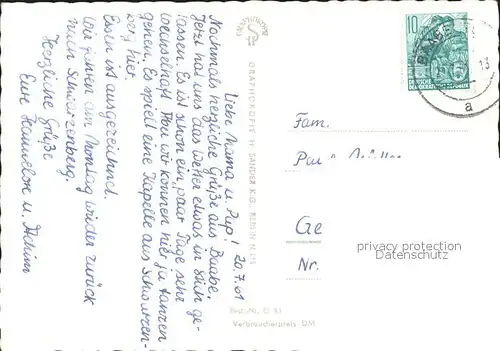 Liebe Mama u. Pap! 20.7.61
Nochmals herzliche Grüße aus Baabe.
Jetzt hat uns das Wetter etwas im Stich ge-
lassen. Es ist schon ein paar Tage sehr
wechselhaft. Aber wir können hier ja tanzen
gehen. Es spielt eine Kapelle aus Schwarzen-
berg hier.
Essen ist ausgezeichnet.
Wir fahren am Montag wieder zurück
nach Schwarzenberg.
Herzliche Grüße
Eure Hannelore u.
GRAPHOKOPIE H. SANDER K.G. BERLIN N 113
Best.-Nr.
Verbraucherpreis DM
10
DEUTSCHE
DEMOKRATISCHE REPUBLIK
BAABE
13
a
Fam.
Ge
Nr.
privacy protection
Datenschutz